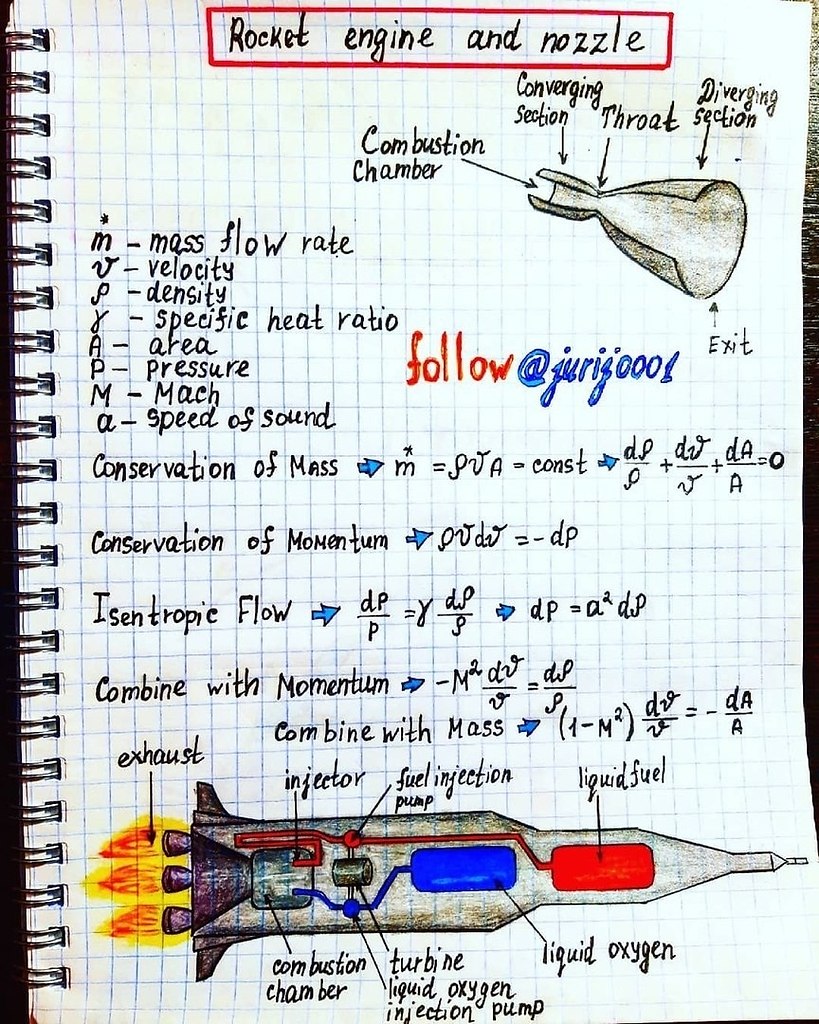 Rocket engine and nozzle
Converging
section
Throat
Diverging
section
Combustion
Chamber
Exit
ṁ - mass flow rate
v - velocity
ρ - density
γ - specific heat ratio
A - area
P - pressure
M - Mach
a - speed of sound
follow @jurij0001
Conservation of Mass → ṁ = ρvA = const → dρ/ρ + dv/v + dA/A = 0
Conservation of Momentum → ρvdv = -dP
Isentropic Flow → dP/P = γ dρ/ρ → dP = a² dρ
Combine with Momentum → -M² dv/v = dρ/ρ
Combine with Mass → (1-M²) dv/v = - dA/A
exhaust
injector
fuel injection
pump
liquid fuel
combustion
chamber
turbine
liquid oxygen
injection pump
liquid oxygen